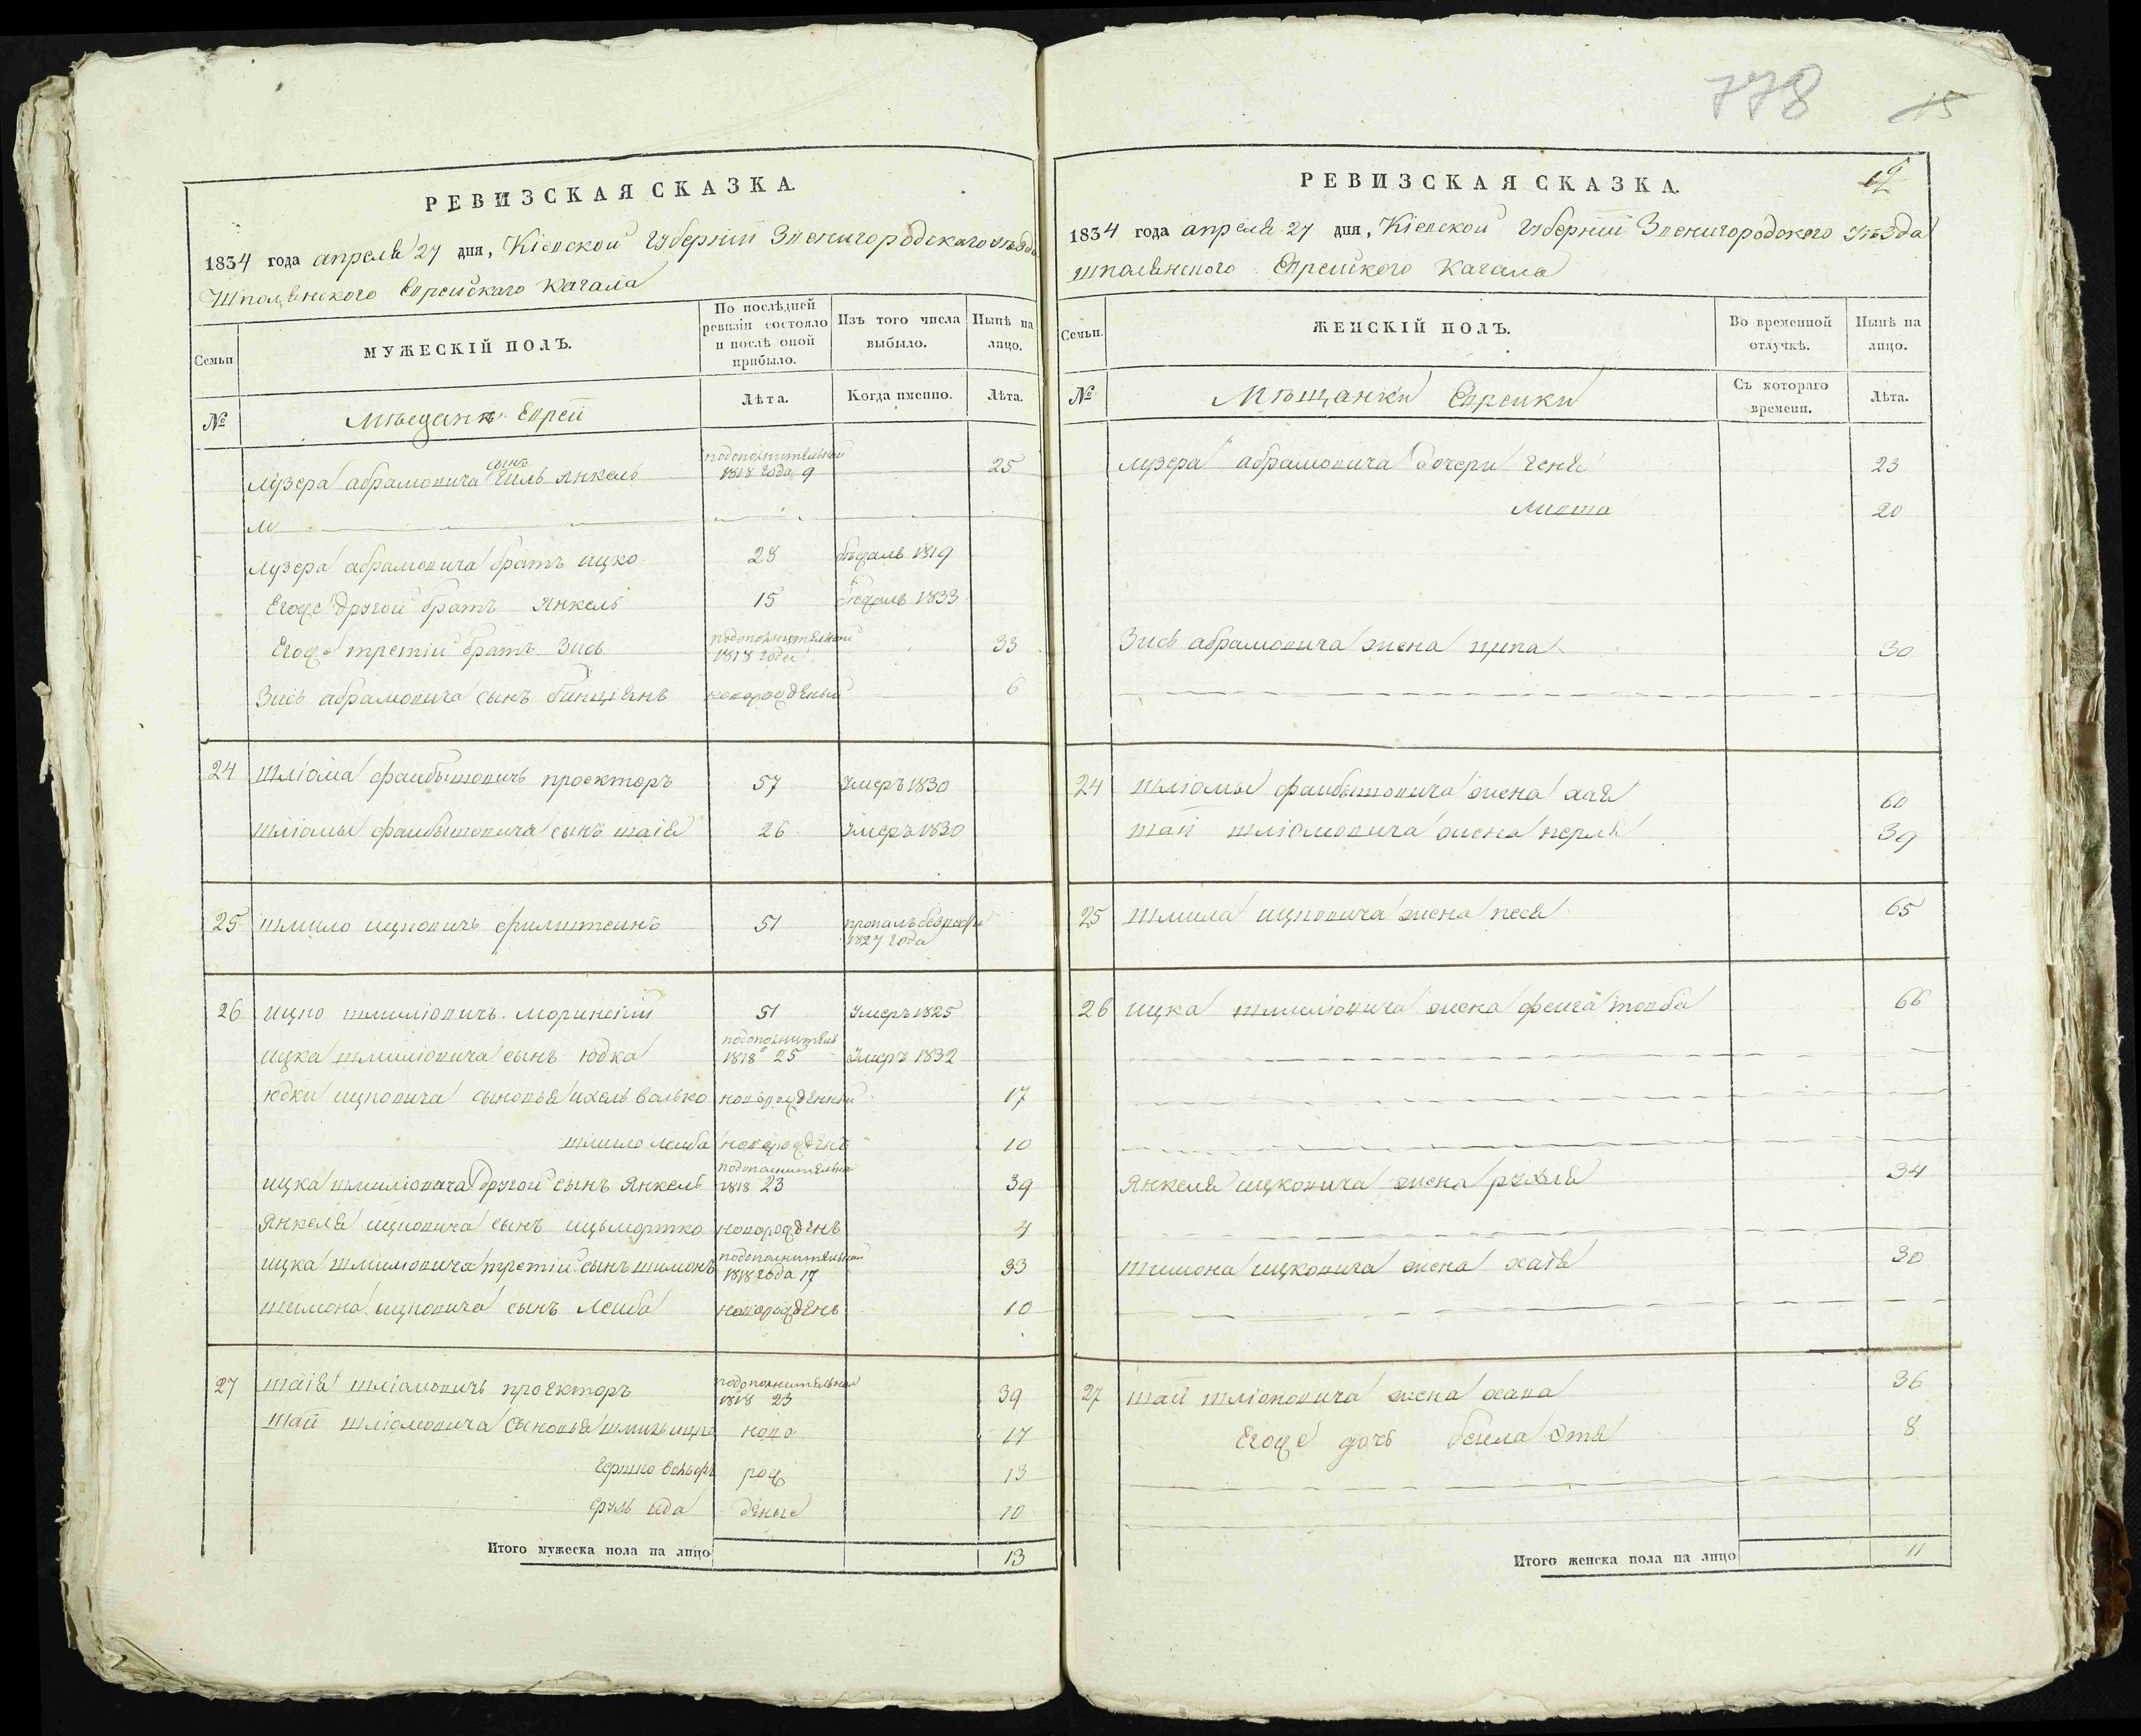 778 15
РЕВИЗСКАЯ СКАЗКА.
1834 года апреля 27 дня, Кіевской Губерніи Звенигородскаго уѣзда
Шполянского Еврейскаго Кагала
Семьи
МУЖЕСКІЙ ПОЛЪ.
По послѣдней ревизіи состояло и послѣ оной прибыло.
Изъ того числа выбыло.
Нынѣ на лицо.
№
Еврей
Лѣта.
Когда именно.
Лѣта.
лузера абрамовича сынъ Гиль Янкель подополнительной 1818 года 9 25
лузера абрамовича братъ ицко 28 бѣжалъ 1819
Егоже другой братъ Янкель 15 бѣжалъ 1833
Егоже третій братъ Зись подополнительной 1818 года 33
Зись абрамовича сынъ бинціёнъ новорожденый 6
24 шліома файбишовичь проскторъ 57 Умеръ 1830
шліомы файбишовича сынъ шаія 26 Умеръ 1830
25 шмило ицковичь филштеинъ 51 пропалъ 1827 года
26 ицко шмиліовичь Моринскій 51 Умеръ 1825
ицка шмиліовича сынъ юдка 1818 25 Умеръ 1832
юдки ицковича сыновья ихель волько новорожденный 17
шмило лейба новорожденъ 10
ицка шмиліовича другой сынъ Янкель 1818 23 39
Янкеля ицковича сынъ ицьмортко новорожденъ 4
ицка шмиліовича третій сынъ шимонъ подополнительной 1818 года 17 33
шимона ицковича сынъ лейба новорожденъ 10
27 шаія шліомовичь проскторъ подополнительной 1818 23 39
шаи шліомовича сыновья ново 17
Гершко вольфъ рож 13
сруль ида деные 10
Итого мужеска пола на лицо 13
РЕВИЗСКАЯ СКАЗКА.
1834 года апреля 27 дня, Кіевской Губерніи Звенигородского уѣзда
шполянского Еврейского Кагала
Семьи.
ЖЕНСКІЙ ПОЛЪ.
Во временной отлучкѣ.
Нынѣ на лицо.
№
Мѣщанки Еврейки
Съ котораго времени.
Лѣта.
лузера абрамовича дочери Геня 23
20
Зись абрамовича жена ципа 30
24 шліомы файбишовича жена хая 60
шаи шліомовича жена перля 39
25 шмила ицковича жена песя 65
26 ицка шмиліовича жена фейга товба 66
Янкеля ицковича жена рухля 34
шимона ицковича жена хаія 30
27 шаи шліомовича жена хана 36
Егоже дочь бейла Этя 8
Итого женска пола на лицо 11